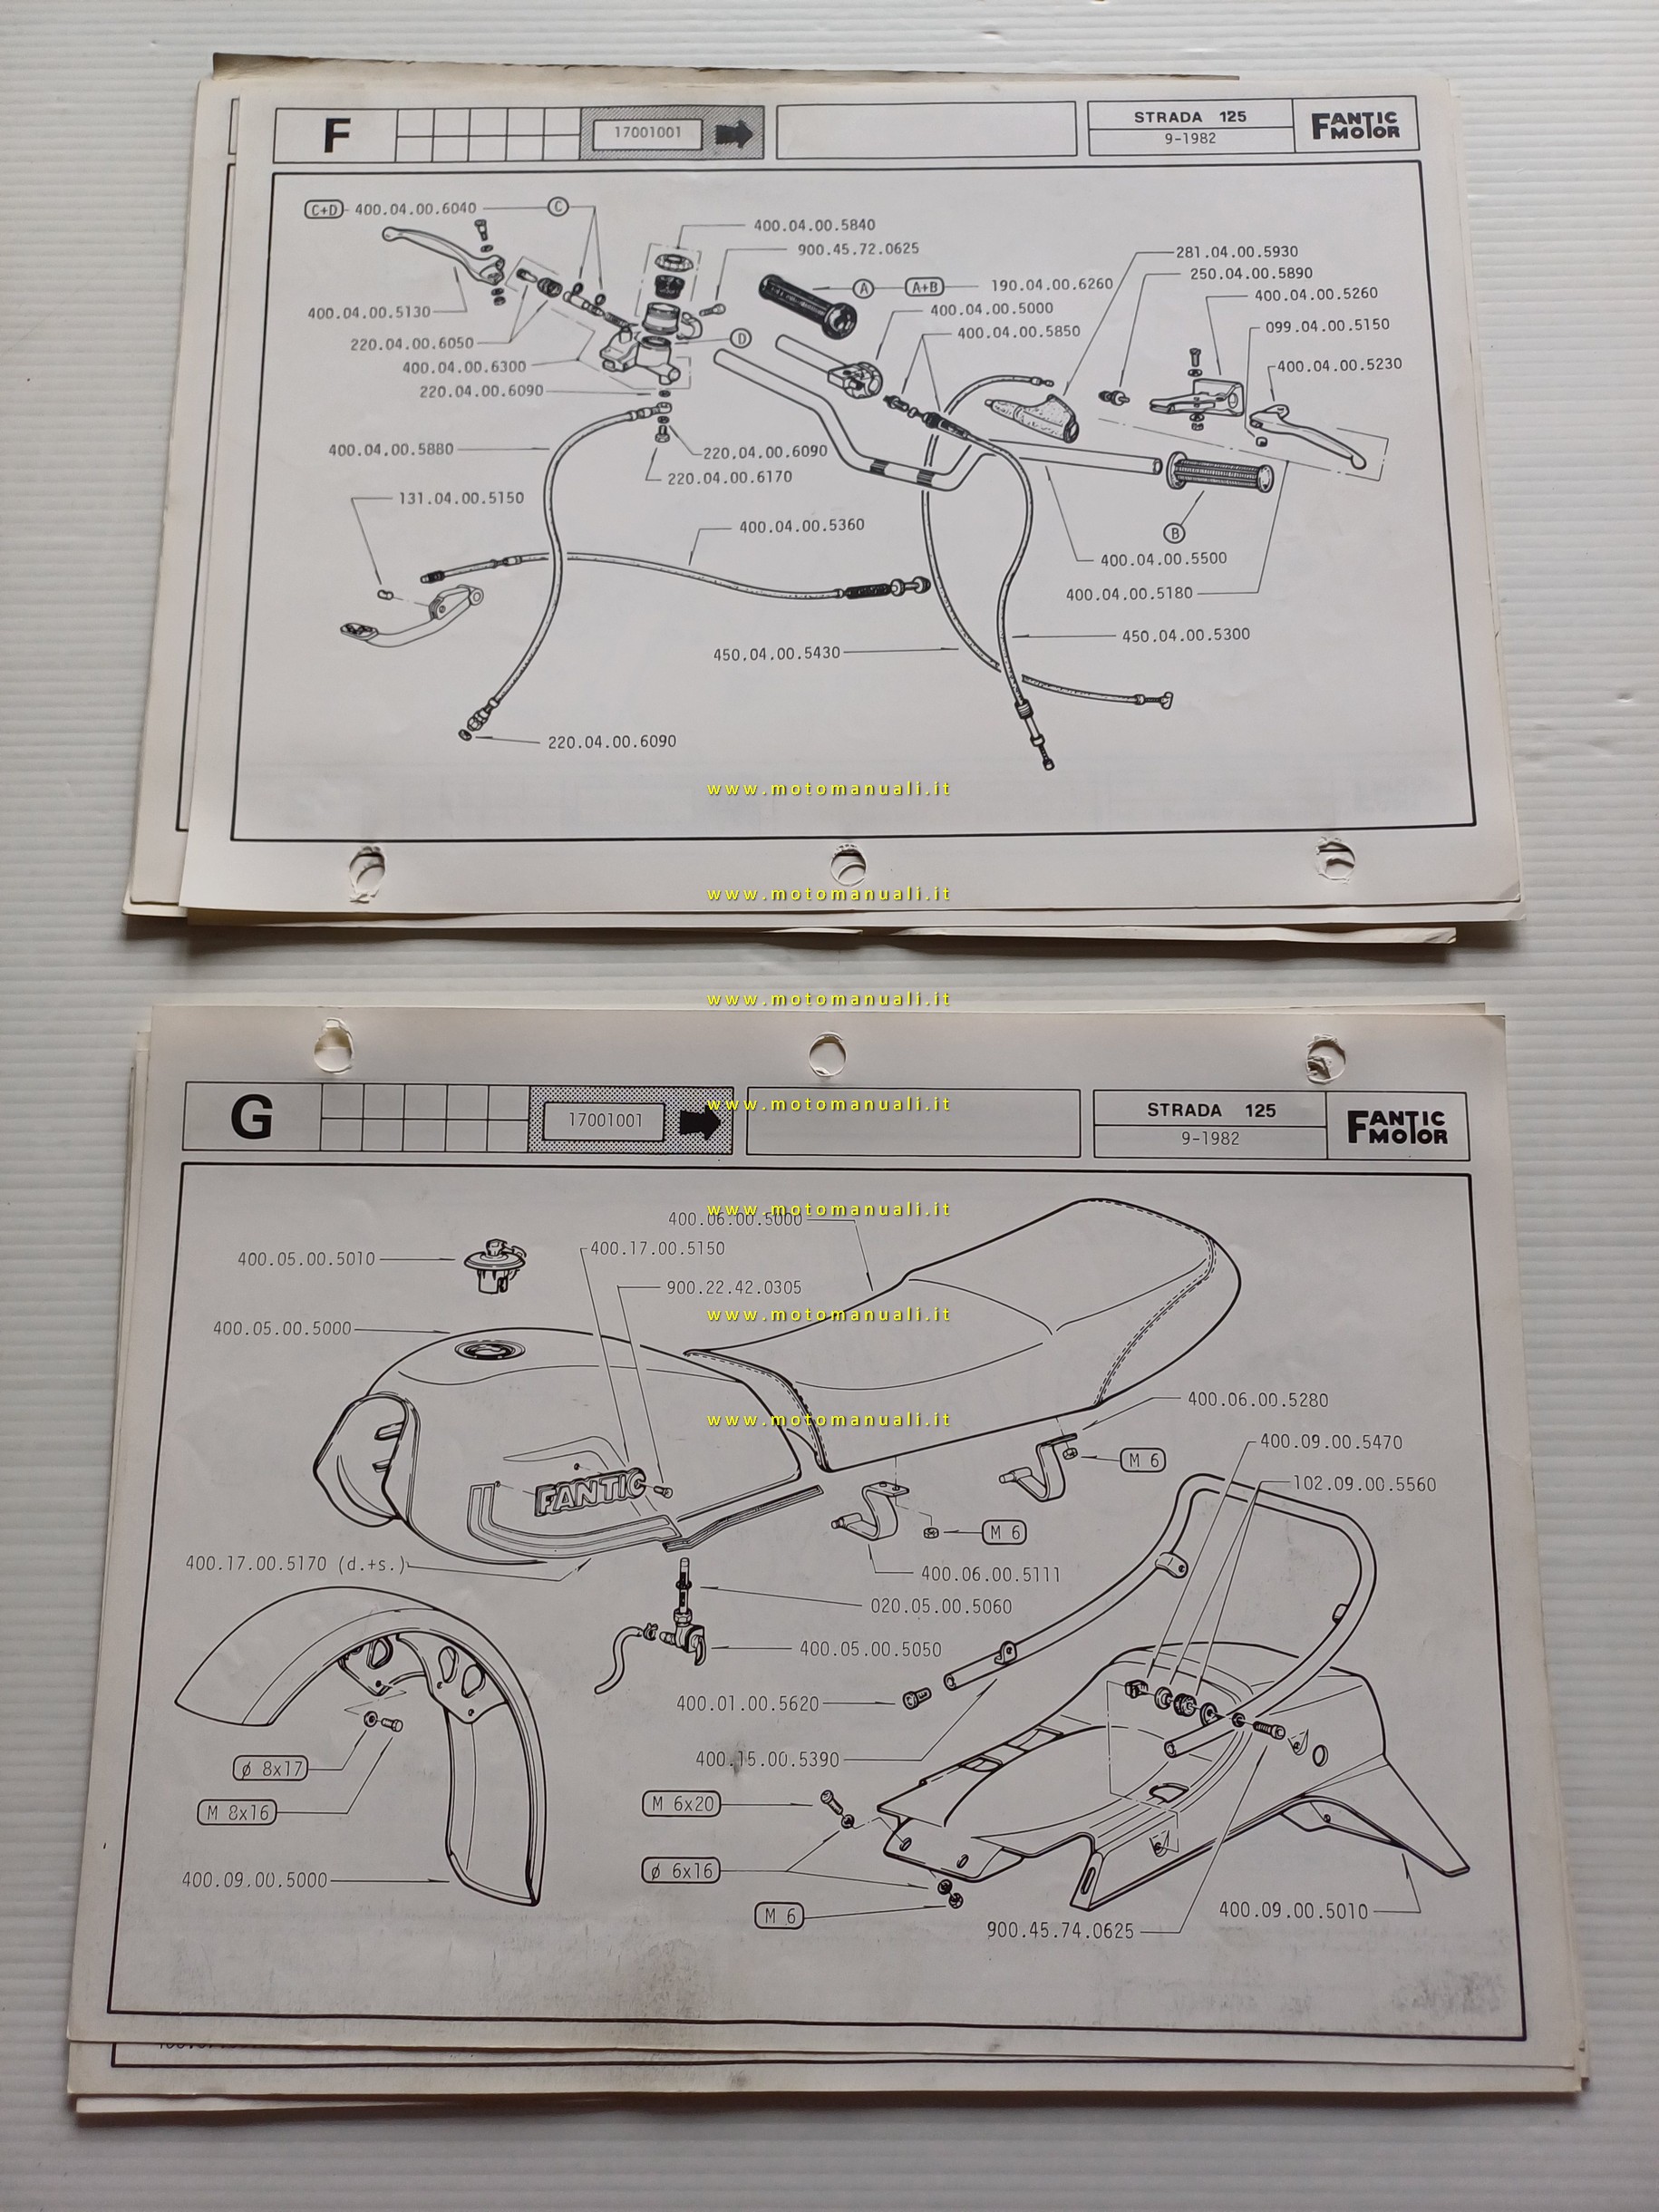 F
17001001
STRADA 125
9-1982
FANTIC MOTOR
C+D 400.04.00.6040
C
400.04.00.5840
900.45.72.0625
281.04.00.5930
250.04.00.5890
A
A+B
190.04.00.6260
400.04.00.5260
400.04.00.5130
400.04.00.5000
099.04.00.5150
400.04.00.5850
220.04.00.6050
D
400.04.00.6300
400.04.00.5230
220.04.00.6090
400.04.00.5880
220.04.00.6090
220.04.00.6170
131.04.00.5150
400.04.00.5360
B
400.04.00.5500
400.04.00.5180
450.04.00.5300
450.04.00.5430
220.04.00.6090
www.motomanuali.it
www.motomanuali.it
www.motomanuali.it
G
17001001
www.motomanuali.it
STRADA 125
9-1982
FANTIC MOTOR
www.motomanuali.it
400.06.00.5000
400.05.00.5010
400.17.00.5150
900.22.42.0305
www.motomanuali.it
400.05.00.5000
400.06.00.5280
www.motomanuali.it
400.09.00.5470
M 6
102.09.00.5560
FANTIC
M 6
400.17.00.5170 (d.+s.)
400.06.00.5111
020.05.00.5060
400.05.00.5050
400.01.00.5620
400.15.00.5390
ø 8x17
M 8x16
M 6x20
ø 6x16
400.09.00.5000
M 6
400.09.00.5010
900.45.74.0625